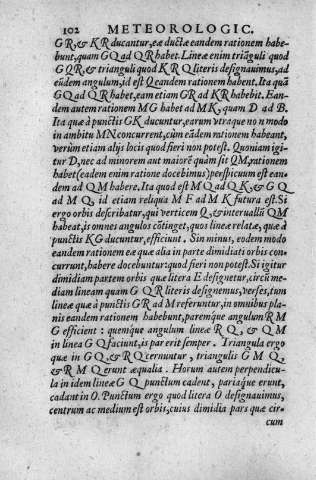 102 METEOROLOGIC.
GR, & KR ducantur, eæ ductæ eandem rationem habe-
bunt, quam GQ ad QR habet. Lineæ enim triãguli quod
GQR, & trianguli quod KRQ literis designauimus, ad
eũdem angulum, id est Q eandem rationem habent. Ita quã
GQ ad QR habet, eam etiam GR ad KR habebit. Ean-
dem autem rationem MG habet ad MK, quam D ad B.
Ita quæ à punctis GK ducuntur, earum vtraque non modo
in ambitu MN concurrent, cùm eãdem rationem habeant,
verùm etiam alijs locis quod fieri non potest. Quoniam igi-
tur D, nec ad minorem aut maiorẽ quàm sit QM, rationem
habet (eadem enim ratione docebimus) perspicuum est ean-
dem ad QM habere. Ita quod est MQ ad QK, & GQ
ad MQ, id etiam reliqua MF ad MK futura est. Si
ergo orbis describatur, qui verticem Q, & interuallũ QM
habeat, is omnes angulos cõtinget, quos lineæ relatæ, quæ à
punctis KG ducuntur, efficiunt. Sin minus, eodem modo
eandem rationem eæ quæ alia in parte dimidiati orbis con-
currunt, habere docebuntur: quod fieri non potest. Si igitur
dimidiam partem orbis quæ litera E designetur, circũ me-
diam lineam quam GQR literis designemus, verses, tum
lineæ quæ à punctis GR ad M referuntur, in omnibus pla-
nis eandem rationem habebunt, paremque angulum RM
G efficient: quemque angulum lineæ RQ, & QM
in linea GQ faciunt, is par erit semper. Triangula ergo
quæ in GQ, & RQ cernuntur, triangulis GMQ,
& RMQ erunt æqualia. Horum autem perpendicu-
la in idem lineæ GQ punctum cadent, pariaque erunt,
cadant in O. Punctum ergo quod litera O designauimus,
centrum ac medium est orbis, cuius dimidia pars quæ cir-
cum